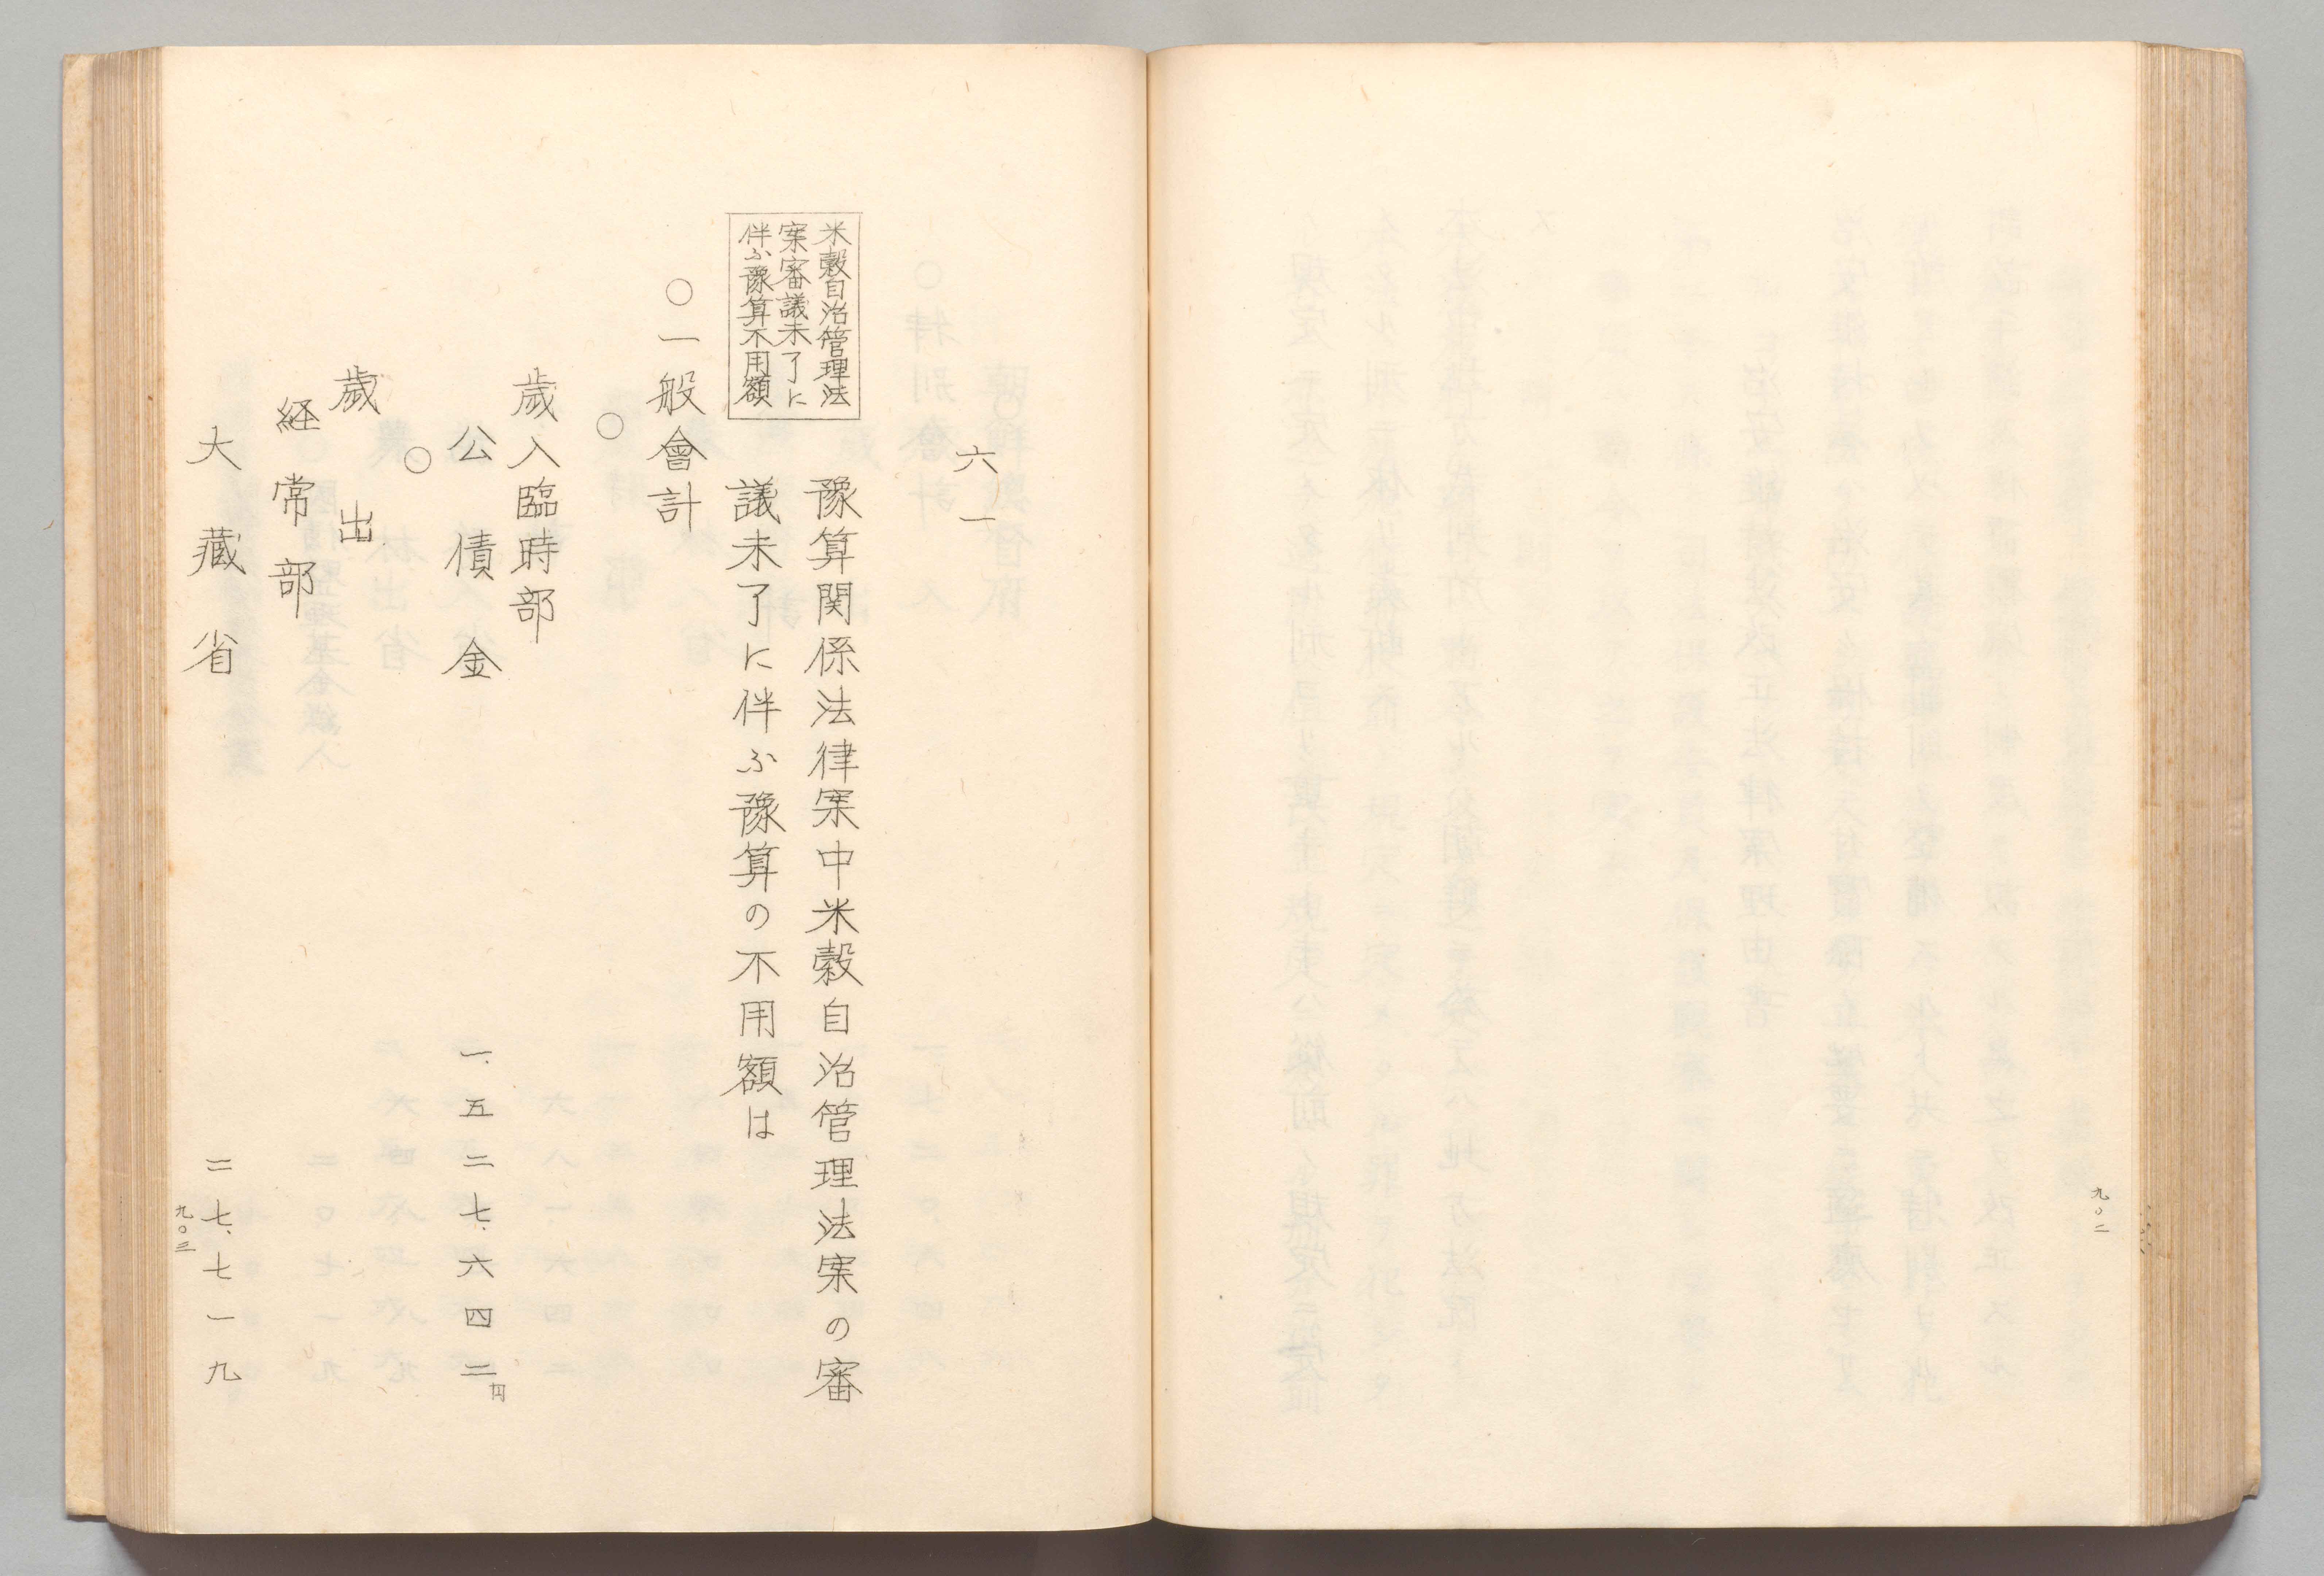 九〇二
六一
米穀自治管理法
案審議未了に
伴ふ豫算不用額
豫算関係法律案中米穀自治管理法案の審
議未了に伴ふ豫算の不用額は
〇一般會計
〇
歳入臨時部
公債金 一、五二七、六四二円
〇
歳出
経常部
大藏省 二七、七一九
九〇三